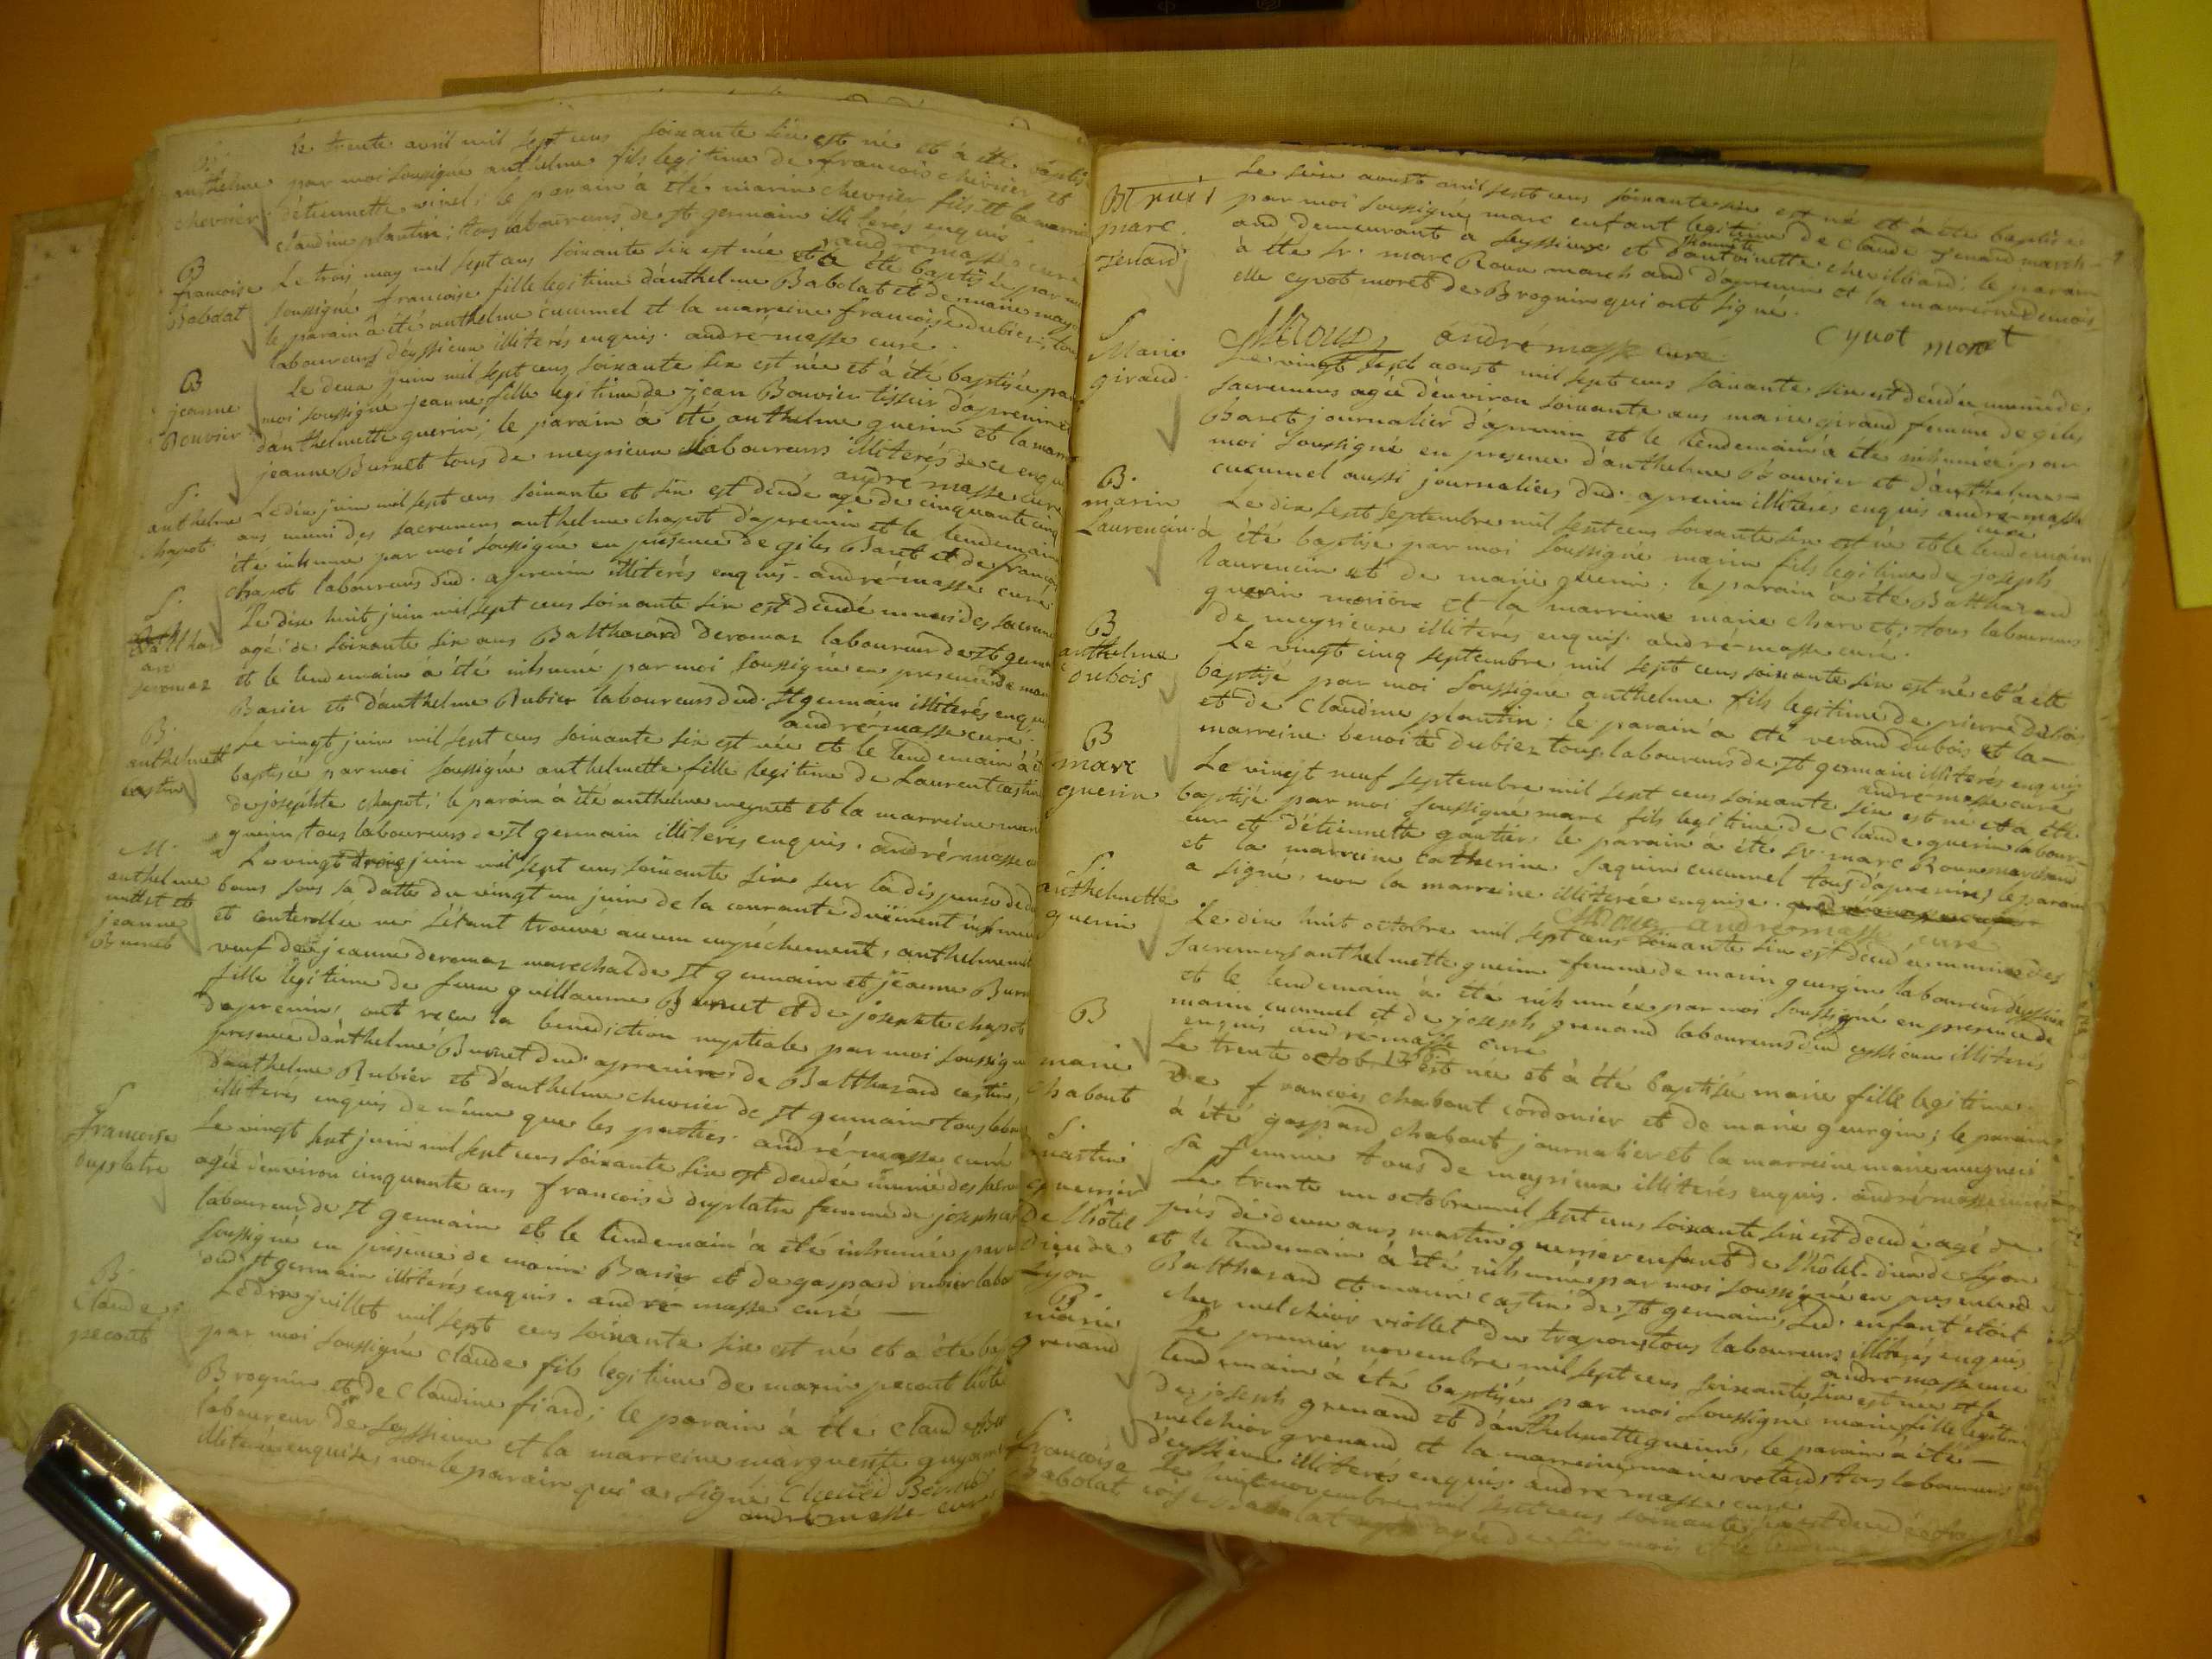 B.
anthelme
chevrier
Le trente avril mil sept cens soixante six est né et a été baptisé
par moi soussigné anthelme fils legitime de francois chevrier et
d'etiennette vinel; le parain à été marin chevrier fils et la marreine
claudine plantin; tous laboureurs de st germain illiterés enquis
andré masse curé
B
francoise
Babolat
Le trois may mil sept cens soixante six est née et à été baptisée par moi
soussigné francoise fille legitime d'anthelme Babolat et de marie
le parain à été anthelme cucumel et la marreine francoise Dubiez; tous
laboureurs d'eyssieux illiterés enquis. andré masse curé.
B
jeanne
Bouvier
Le deux juin mil sept cens soixante six est née et à été baptisée par
moi soussigné jeanne fille legitime de jean Bouvier tissier d'apremin et
d'anthelmette guerin; le parain à été anthelme guerin et la marreine
jeanne Burnet tous de meyrieux laboureurs illiterés de ce enquis
andré masse curé
S.
anthelme
chapot
Le dix juin mil sept cens soixante et six est decedé agé de cinquante cinq
ans muni des sacremens anthelme chapot d'apremin et le lendemain
été inhumé par moi soussigné en présence de giles Baret et de francois
chapot laboureurs dud. apremin illiterés enquis. andré masse curé
S.
Balthaz
ard
Deromaz
Le dix huit juin mil sept cens soixante six est decedé muni des sacremens
agé de soixante six ans Balthazard Deromaz laboureur de st germain
et le lendemain à été inhumé par moi soussigné en presence de marin
Barier et d'anthelme Rubier laboureurs dud. st germain illiterés enquis
andré masse curé.
B.
anthelmett
castin
Le vingt juin mil sept cens soixante six est née et le lendemain à été
baptisée par moi soussigné anthelmette fille legitime de Laurent castin
de josephte chapot; le parain à été anthelme meynet et la marreine
guerin, tous laboureurs de st germain illiterés enquis. andré masse
M.
anthelme
et
jeanne
Burnet
Le vingt trois juin mil sept cens soixante six sur la dispense de deux
bans sous sa datte du vingt un juin de la courante duëment insinuée
et controllée ne s'étant trouvé aucun empéchement, anthelme
veuf de jeanne deromaz marechal de st germain et jeanne Burnet
fille legitime de feu guillaume Burnet et de josephte chapot
d'apremin, ont recu la benediction nuptiale par moi soussigné
presence d'anthelme Burnet dud. apremin de Balthazard castin,
d'anthelme Rubier et d'anthelme chevrier de st germain tous
illiterés enquis de même que les parties. andré masse curé
S
francoise
duplatre
Le vingt sept juin mil sept cens soixante six est decedée munie des
agée d'environ cinquante ans francoise duplatre femme de joseph
laboureur de st germain et le lendemain à été inhumée par
soussigné en présence de marin Barier et de gaspard rubier
dud. st germain illiterés enquis. andré masse curé
B.
Claude
pecout
Le dix juillet mil sept cens soixante six est né et a été
par moi soussigné claude fils legitime de marin pecout hôte
Brognin et de claudine fiard; le parain à été claude
laboureur de seyssieux et la marreine marguerite
illiterée enquise, non le parain qui a signé
andré masse curé
marc
Tenard
Le six aoust mil sept cens soixante six est né et à été baptisé
par moi soussigné marc enfant legitime de claude Tenard march-
and demeurant à seyssieux et d'honnete antoinette chevilliard; le parain
à été sr. marc Roux marchand d'apremin et la marreine demois
elle cyvot moret de Brognin qui ont signé.
MRoux andré masse curé cyvot moret
S
Marie
giraud
Le vingt sept aoust mil sept cens soixante six est decedée munie des
sacremens agée d'environ soixante ans marie giraud femme de giles
Baret journalier d'apremin et le lendemain à été inhumée par
moi soussigné en presence d'anthelme Bouvier et d'anthelme
cucumel aussi journaliers dud. apremin illiterés enquis andré masse
curé
B.
marin
Laurencin
Le dix sept septembre mil sept cens soixante six est né et le lendemain
à été baptisé par moi soussigné marin fils legitime de joseph
Laurencin et de marie guerin; le parain à été Balthazard
guerin et la marreine marie charvet; tous laboureurs
de meyrieux illiterés enquis. andré masse curé.
B
anthelme
Dubois
Le vingt cinq septembre mil sept cens soixante six est né et à été
baptisé par moi soussigné anthelme fils legitime de pierre dubois
et de Claudine plantin; le parain à été verand dubois et la
marreine benoite Dubiez tous laboureurs de st germain illiterés enquis
andré masse curé
B
marc
guerin
Le vingt neuf septembre mil sept cens soixante six est né et à été
baptisé par moi soussigné marc fils legitime de Claude guerin labour-
eur et d'etiennette gautier; le parain à été sr. marc Roux marchand
et la marreine catherine Jaquin cucumel tous d'apremin; le parain
a signé, non la marreine illiterée enquise.
MRoux andré masse curé
S
anthelmette
guerin
Le dix huit octobre mil sept cens soixante six est decedée munie des
sacremens anthelmette guerin femme de marin geurgin laboureur d'eyssieux
et le lendemain à été inhumée par moi soussigné en presence de
marin cucumel et de joseph grenand laboureurs dud. eyssieux illiterés
enquis andré masse curé
B
marie
Chabout
Le trente octobre est née et à été baptisée marie fille legitime
de francois chabout cordonier et de marie geurgin; le parain
à été gaspard chabout journalier et la marreine marie
sa femme tous de meyrieux illiterés enquis. andré masse curé
S.
martin
guerrier
de l'hôtel
dieu de
Lyon
Le trente un octobre mil sept cens soixante six est decedé agé de
près de deux ans martin guerrier enfant de l'hôtel-dieu de Lyon
et le lendemain à été inhumé par moi soussigné en presence de
Balthazard et marin castin de st germain, Led. enfant étoit
chez melchior viollet du trapon; tous laboureurs illiterés enquis
andré masse curé
B.
marie
grenand
Le premier novembre mil sept cens soixante six est née et le
lendemain à été baptisée par moi soussigné marie fille legitime
de joseph grenand et d'anthelmette guerin, le parain à été
melchior grenand et la marreine marie votard, tous laboureurs
d'eyssieux illiterés enquis. andré masse curé
S.
francoise
Babolat
Le huit novembre mil sept cens soixante six est decedée
Babolat agée de six mois